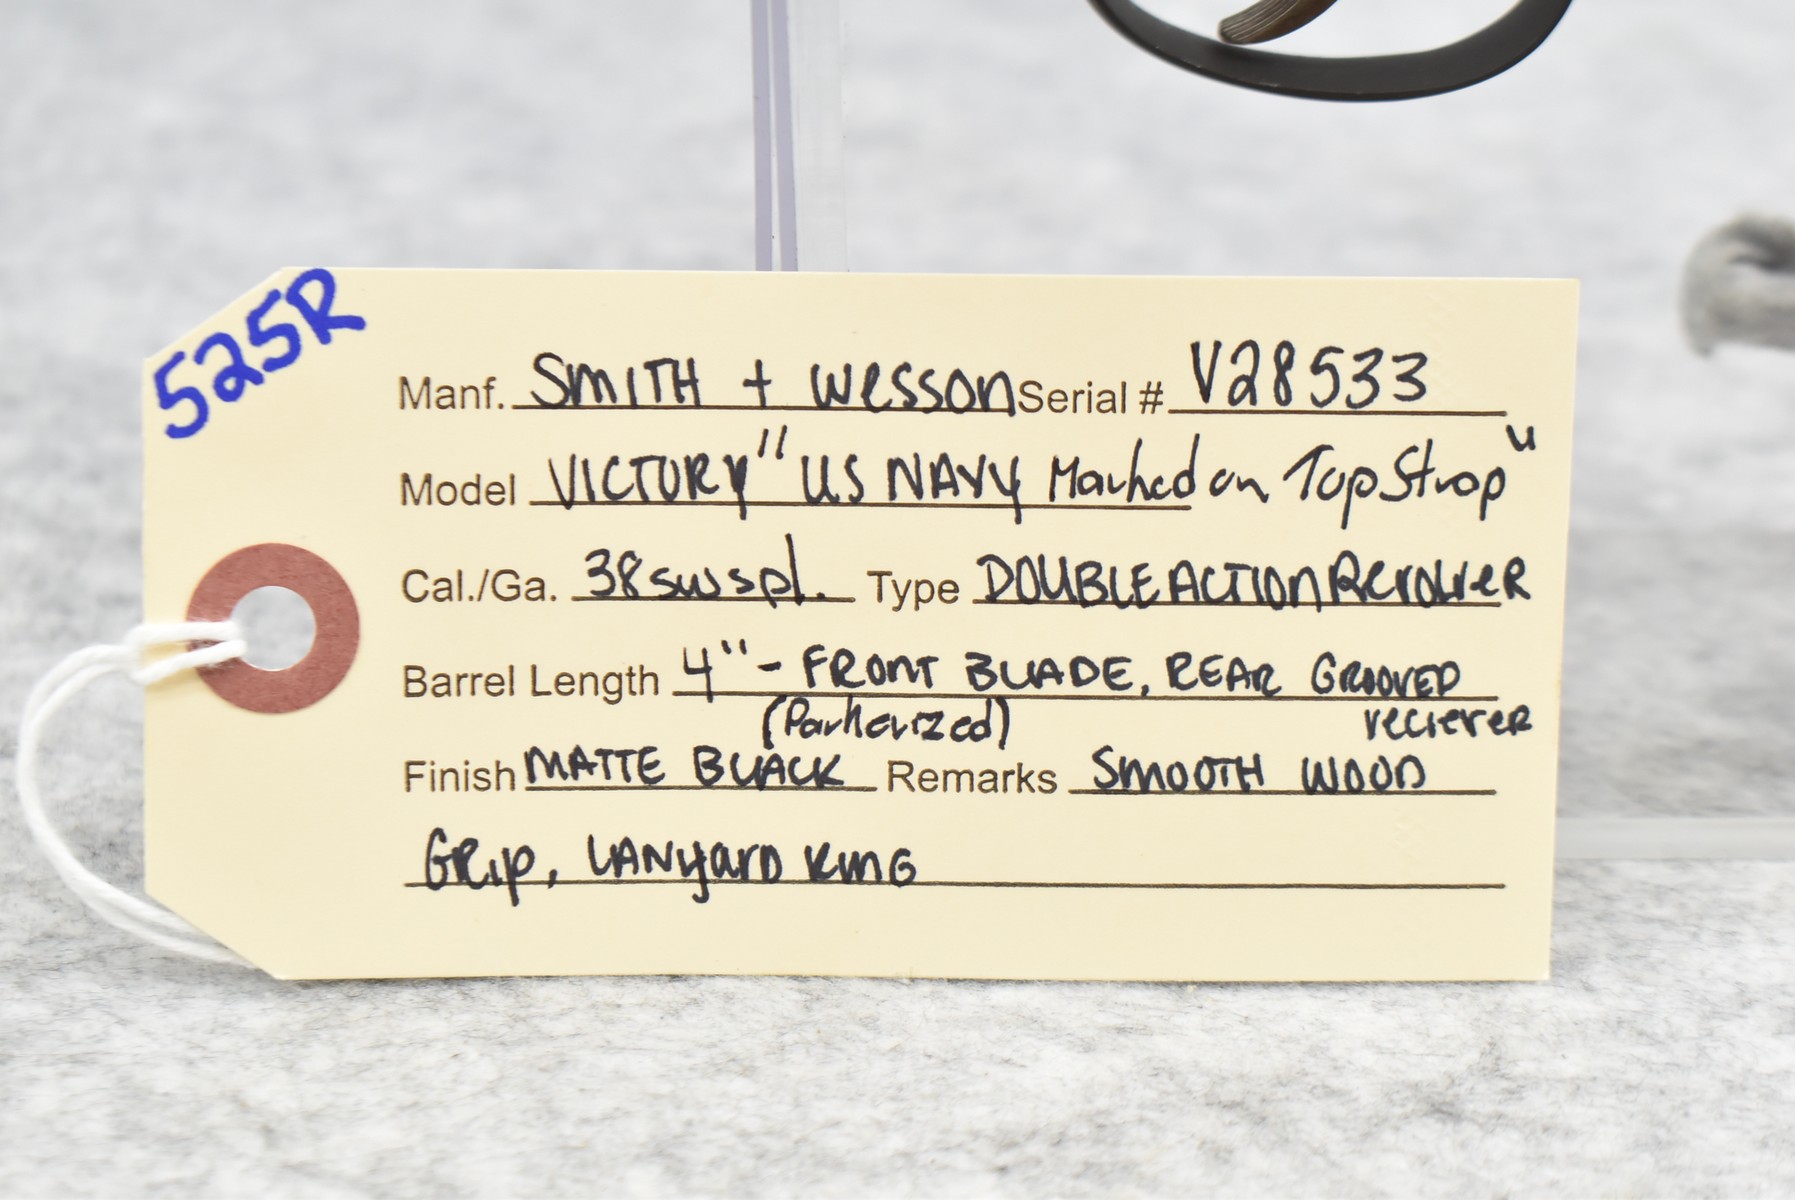 525R
Manf. SMITH + Wesson Serial # V28533
Model VICTORY "US NAVY Marked on Top Strap"
Cal./Ga. 38 sw spl. Type DOUBLE ACTION Revolver
Barrel Length 4" - FRONT BLADE, REAR GROOVED
(Parkerized) reciever
Finish MATTE BLACK Remarks SMOOTH WOOD
GRIP, LANyarD RING